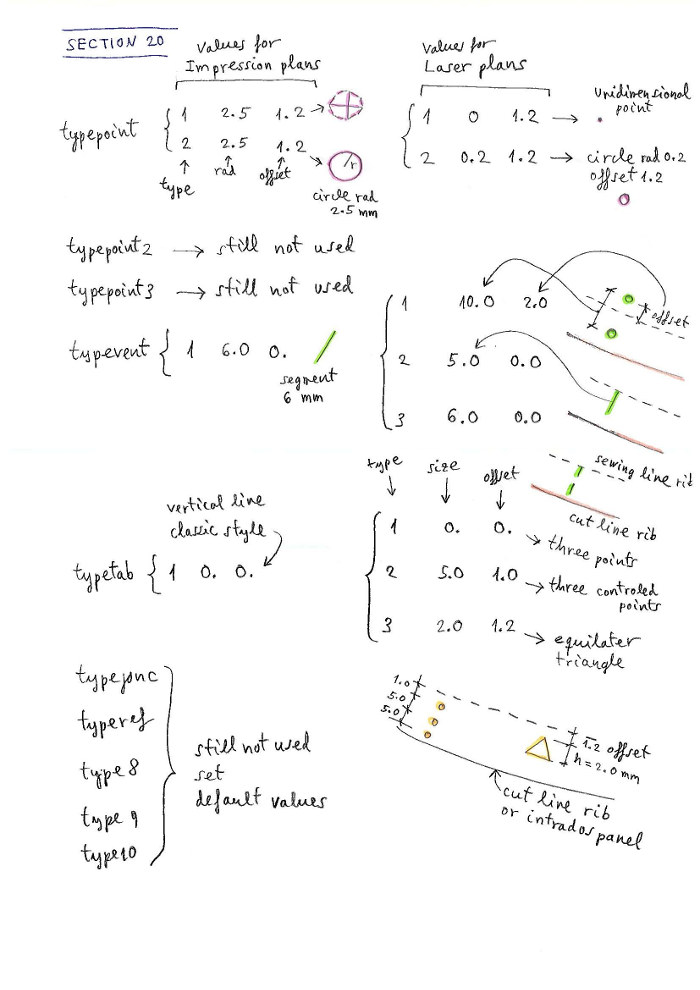 SECTION 20
values for
Impression plans
values for
Laser plans
typepoint
1 2.5 1.2
2 2.5 1.2
type rad offset
r
circle rad
2.5 mm
1 0 1.2
unidimensional
point
2 0.2 1.2
circle rad 0.2
offset 1.2
typepoint2 → still not used
typepoint3 → still not used
typevent { 1 6.0 0.
segment
6 mm
1 10.0 2.0
offset
2 5.0 0.0
3 6.0 0.0
sewing line rib
cut line rib
vertical line
classic style
typetab { 1 0. 0.
type size offset
1 0. 0.
three points
2 5.0 1.0
three controled
points
3 2.0 1.2
equilater
triangle
typejonc
typeref
type8
type9
type10
still not used
set
default values
1.0
5.0
5.0
1.2 offset
h=2.0 mm
cut line rib
or intrados panel